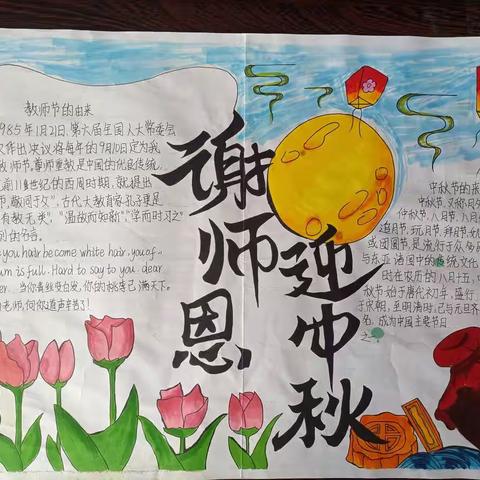 教师节的由来
985年1月21日,第六届全国人大常委会
作出决议将每年的9月10日定为我
教师节,尊师重教是中国的优良传统,
前11世纪的西周时期,就提出
"古代大教育家孔子更是
有教无类","温故而知新","学而时习之"
的名言。
you hair become white hair, you of
is full. Hard to say to you, dear
当你青丝变白发,你的桃李已满天下。
老师,向你道声辛苦了!
谢师恩
迎中秋
中秋节的来
中秋节,又称月夕
仲秋节、八月节、八月
追月节、玩月节、拜月节、
或团圆节,是流行于众多
与东亚诸国中的传统文化
时在农历的八月十五,中
秋节始于唐代初年,盛行
于宋朝,至明清时,已与元旦齐
名,成为中国主要节日
之一